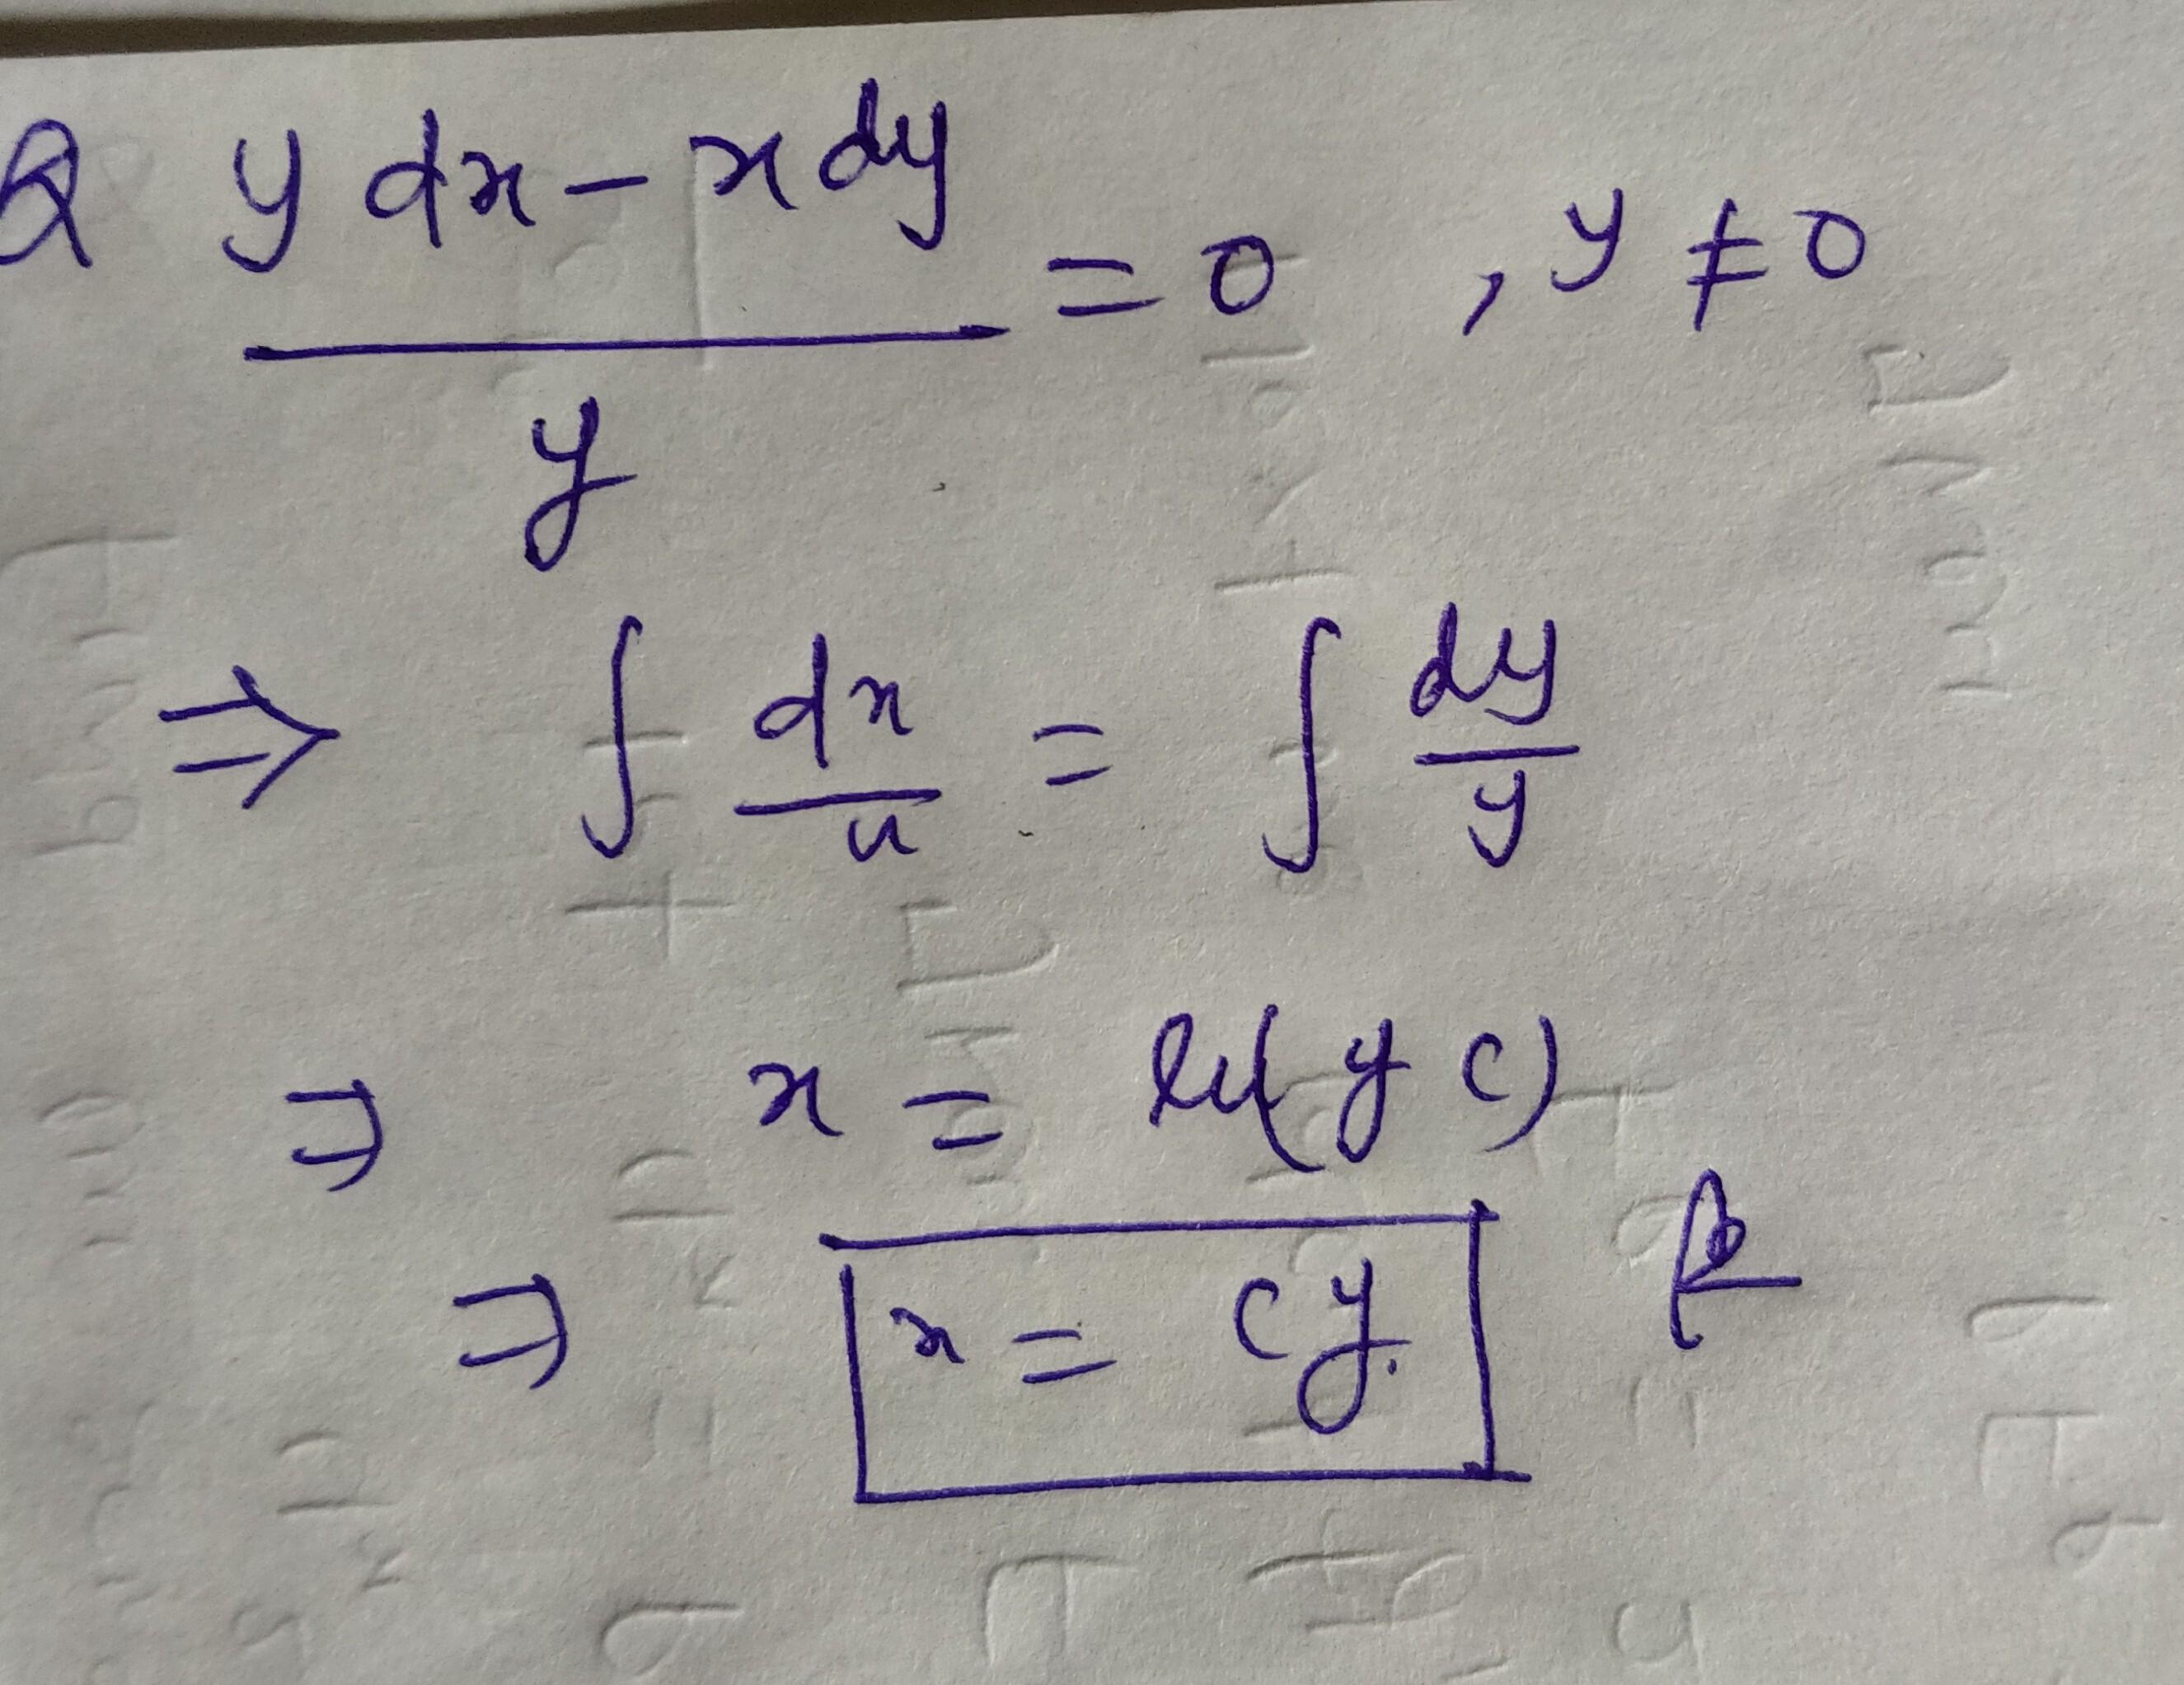 Q y dx - x dy / y = 0 , y ≠ 0
⇒ ∫ dx/x = ∫ dy/y
⇒ x = ln(y c)
⇒ x = cy.